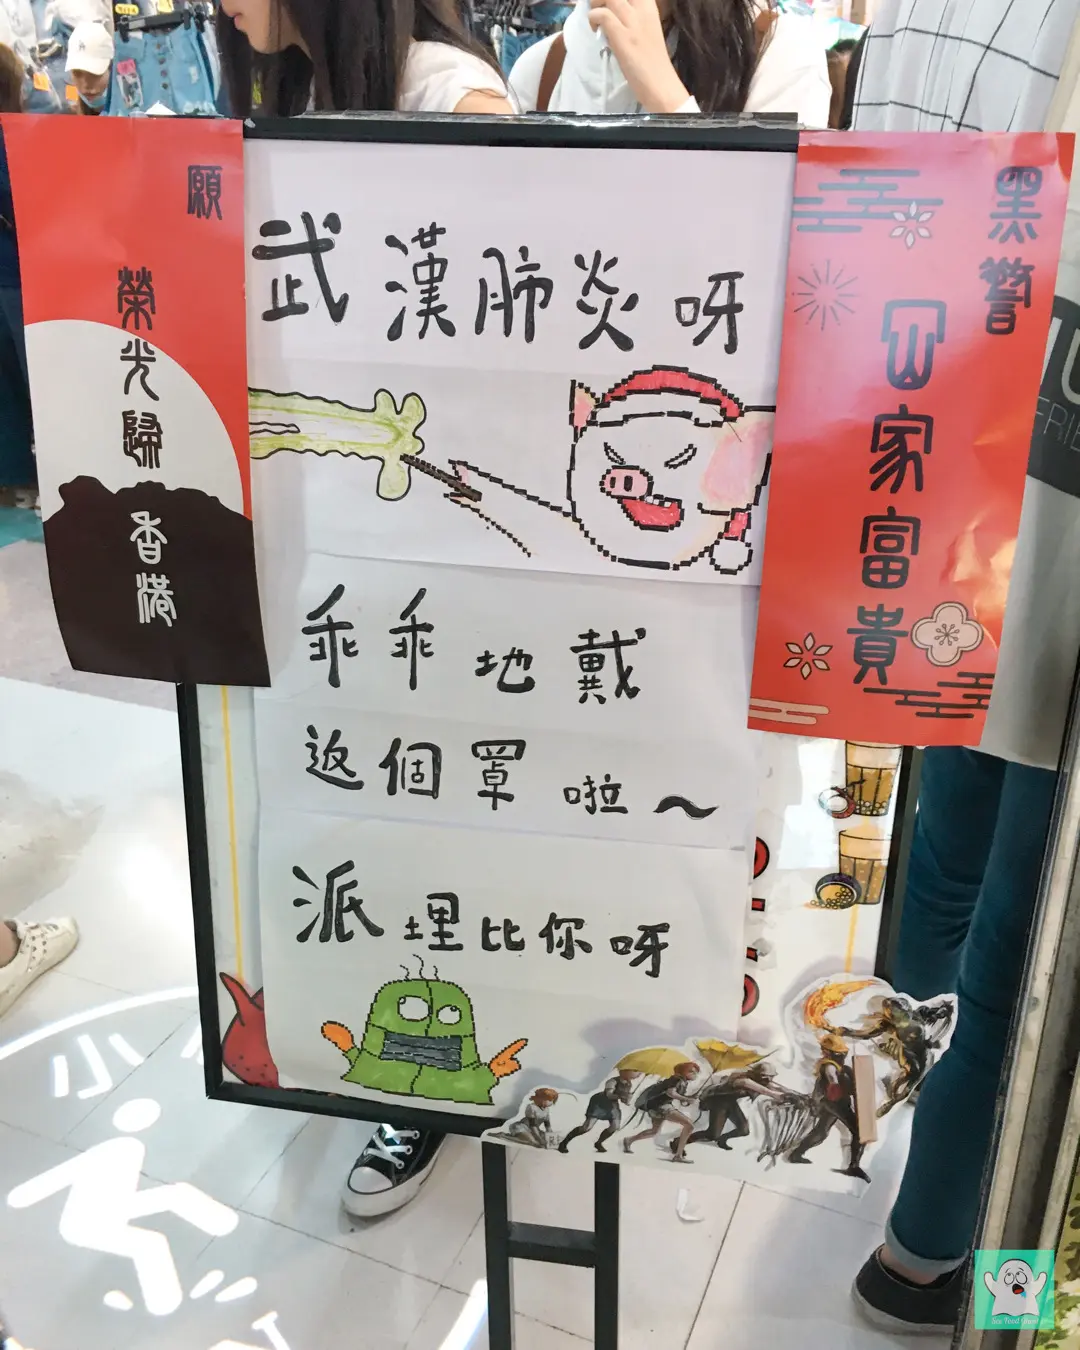 願
榮光歸
香港
武漢肺炎呀
乖乖地戴
返個罩啦～
派埋比你呀
黑警
冚家富貴
小心
See Food Ghost